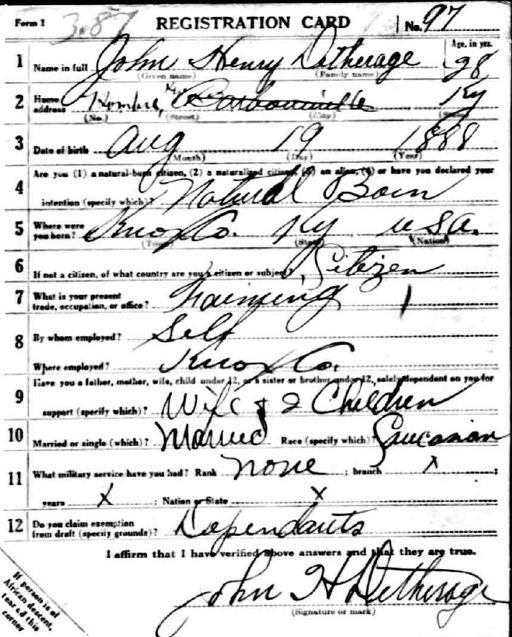 Form 1 387 REGISTRATION CARD No. 97
1 Name in full John Henry Detherage Age, in yrs. 28
(Given name) (Family name)
2 Home address Ky
(No.) (Street) (City) (State)
3 Date of birth Aug 19 1888
(Month) (Day) (Year)
4 Are you (1) a natural-born citizen, (2) a naturalized citizen, (3) an alien, (4) or have you declared your
intention (specify which)? Natural Born
5 Where were you born? Knox Co. Ky USA.
(Town) (State) (Nation)
6 If not a citizen, of what country are you a citizen or subject? Citizen
7 What is your present trade, occupation, or office? Farming
8 By whom employed? Self
Where employed? Knox Co.
9 Have you a father, mother, wife, child under 12, or a sister or brother under 12, solely dependent on you for
support (specify which)? Wife & 2 Children
10 Married or single (which)? Married Race (specify which)? Caucasian
11 What military service have you had? Rank none ; branch X ;
years X ; Nation or State X
12 Do you claim exemption from draft (specify grounds)? Dependants
I affirm that I have verified above answers and that they are true.
John H Detherage
(Signature or mark)
If person is of
African descent,
tear off this
corner